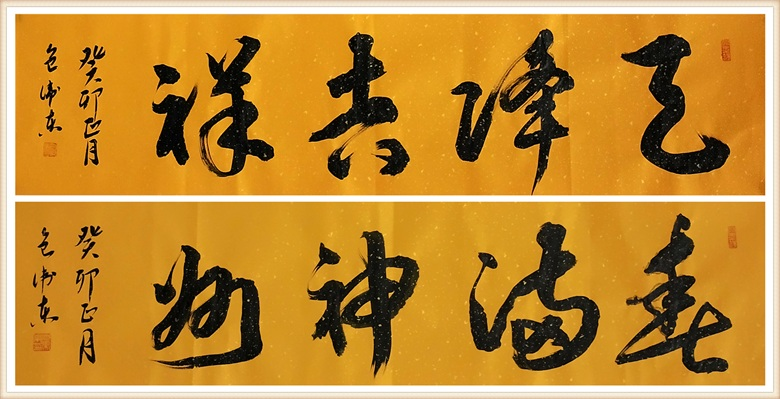 天降吉祥
癸卯正月
包海东
春满神州
癸卯正月
包海东